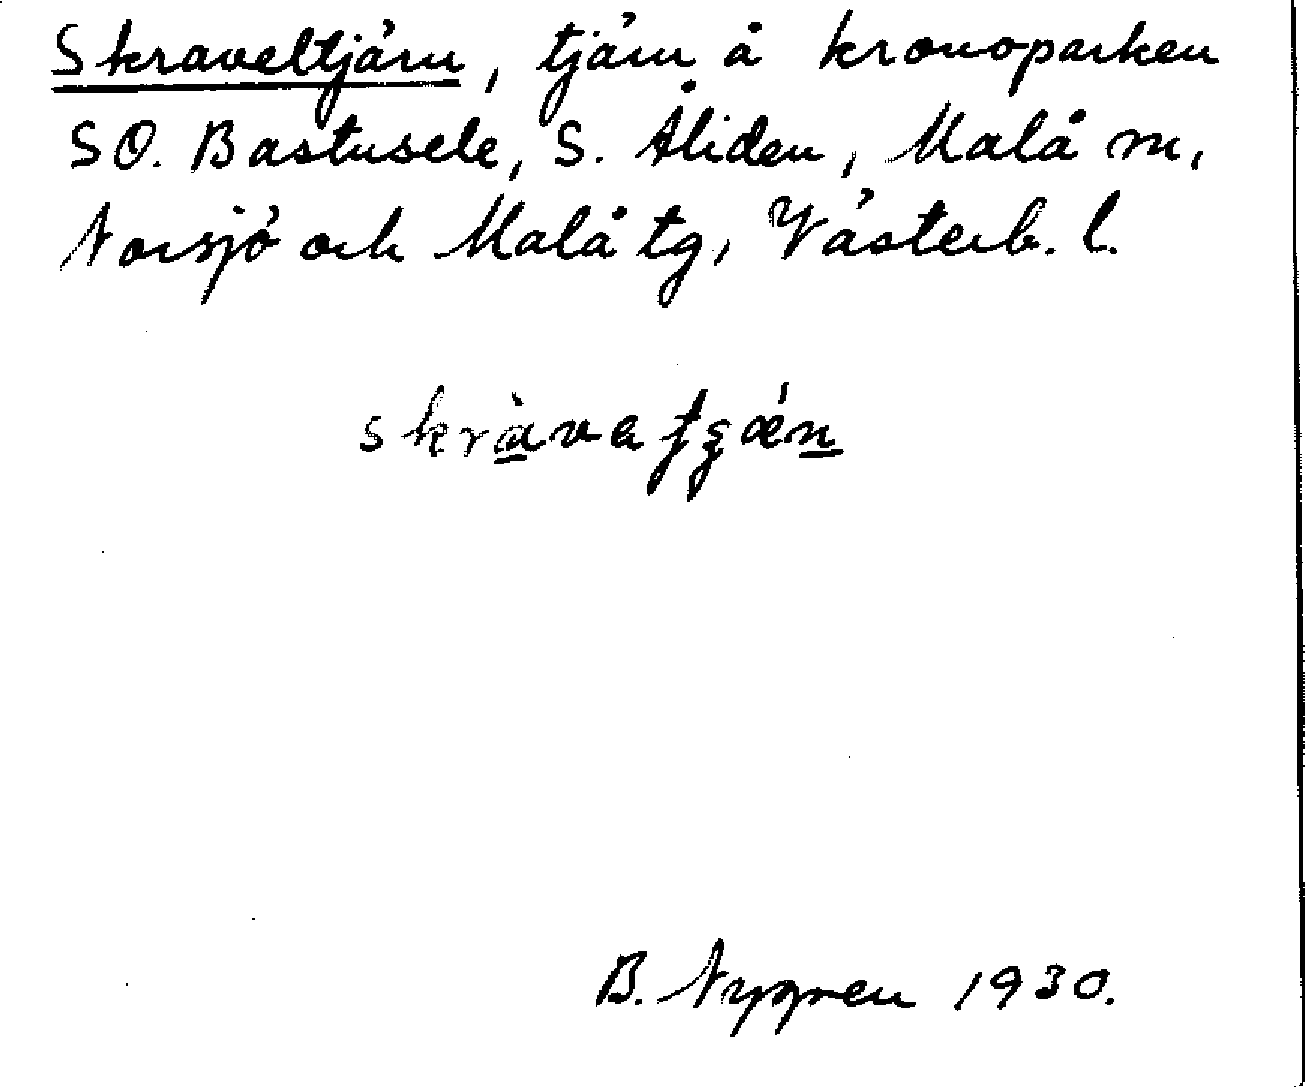 Skraveltjärn, tjärn å kronoparken
SO. Bastusele, S. Åliden, Malå sn,
Norsjö och Malå tg, Västerb. l.
B. Nygren 1930.